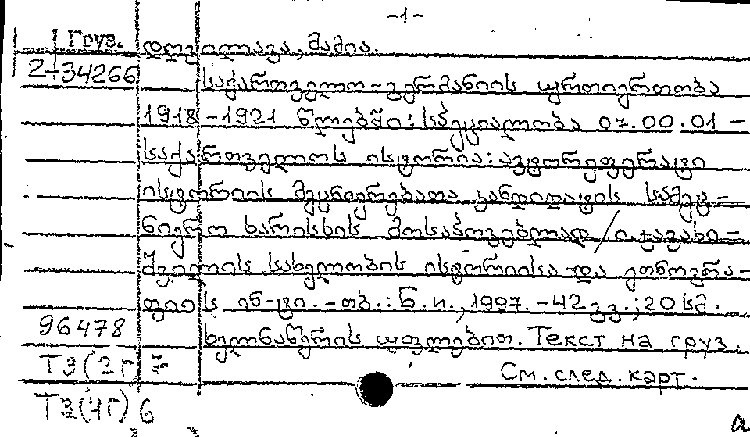 -1-
Груз. დღვილავა, მამია.
2-34266 საქართველო-გერმანიის ურთიერთობა
1918-1921 წლებში: სპეციალობა 07.00.01 -
საქართველოს ისტორია: ავტორეფერატი
ისტორიის მეცნიერებათა კანდიდატის სამეც-
ნიერო ხარისხის მოსაპოვებლად / ი. ჯავახი-
შვილის სახელობის ისტორიისა და ეთნოგრა-
ფიის ინ-ტი. - თბ.: ბ. ი., 1997. - 42 გვ.; 20 სმ.
96478 ხელნაწერის უფლებით. Текст на груз.
ТЭ(2г)
См. след. карт.
ТЭ(4г) 6
a